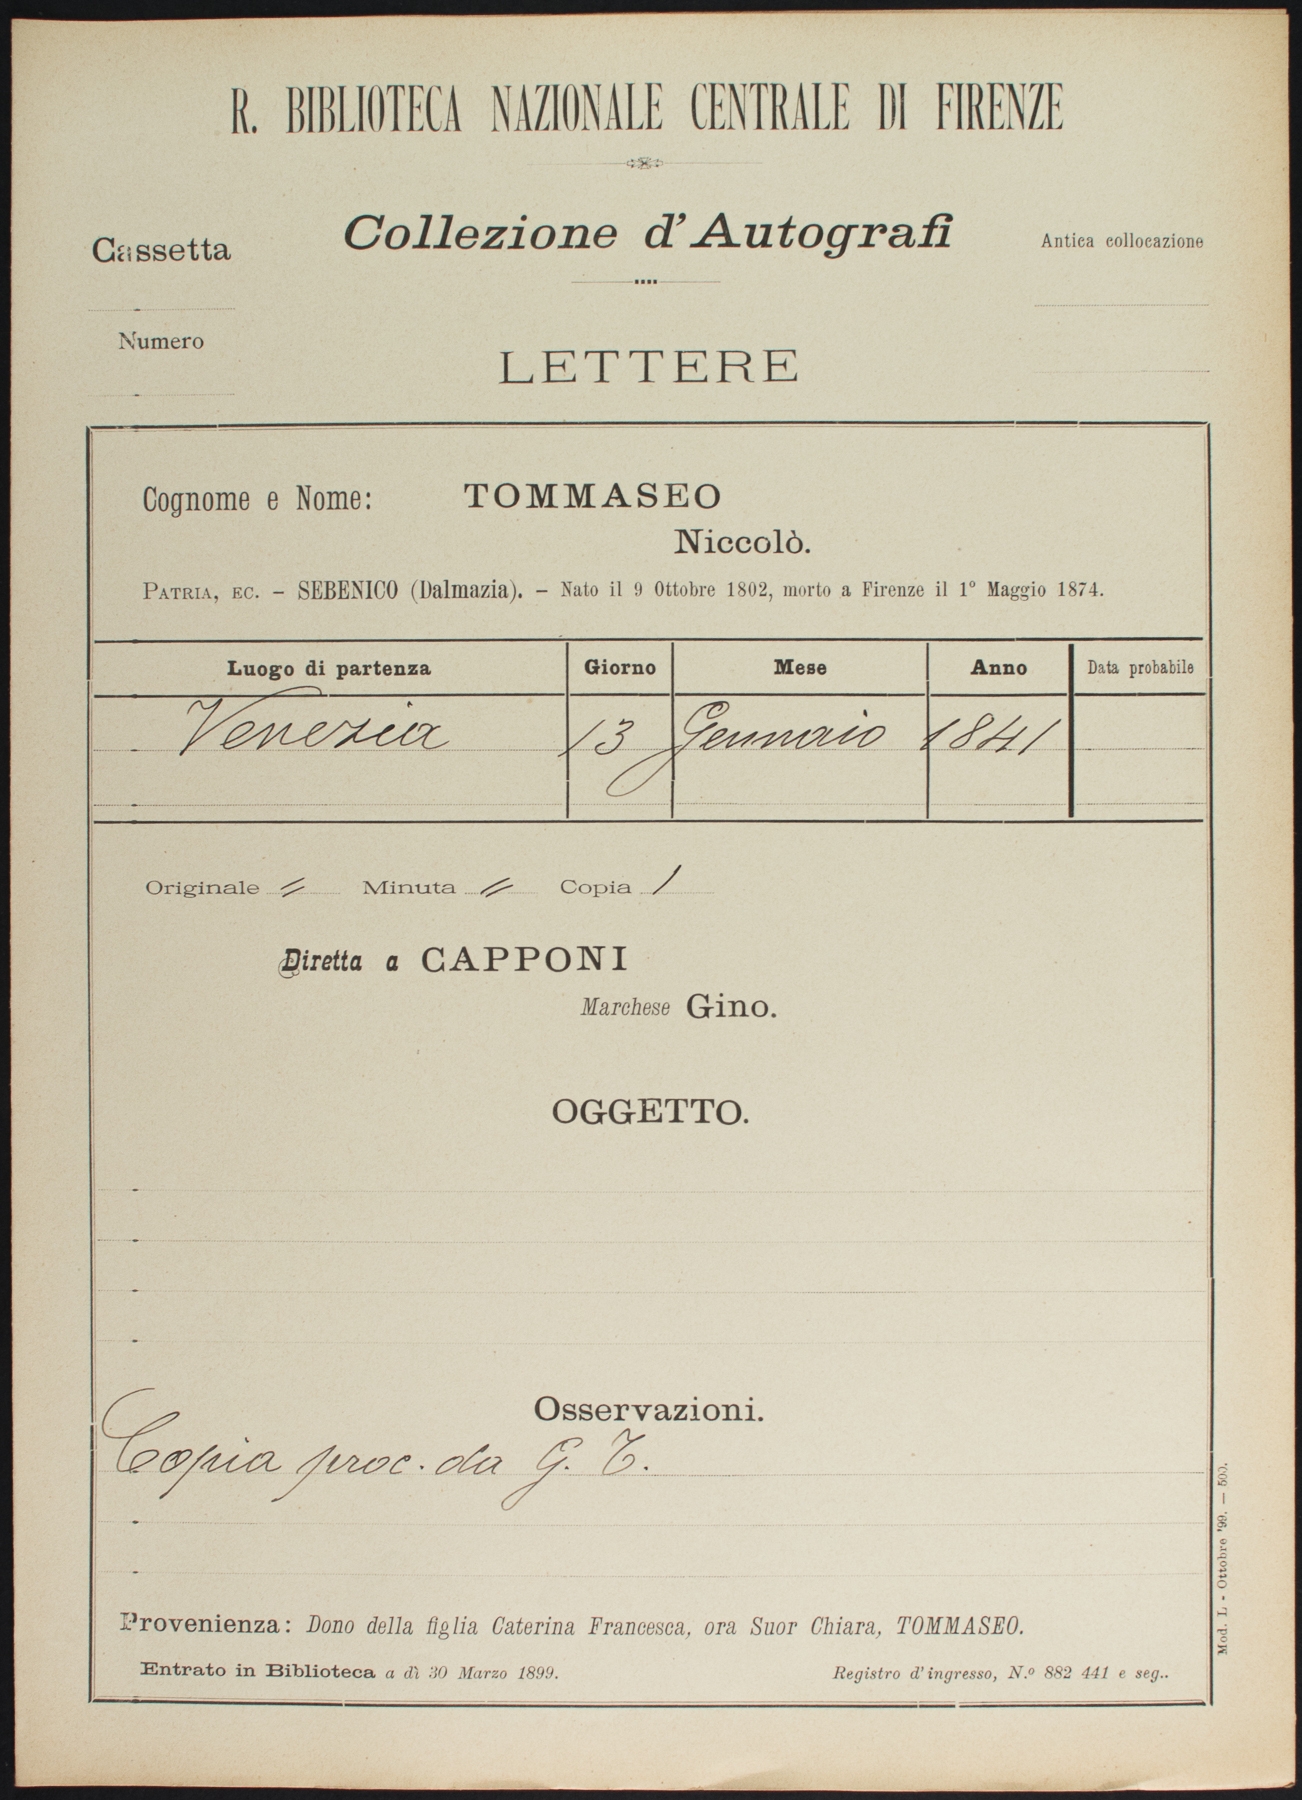 R. BIBLIOTECA NAZIONALE CENTRALE DI FIRENZE
Cassetta
Collezione d'Autografi
Antica collocazione
Numero
LETTERE
Cognome e Nome: TOMMASEO
Niccolò.
PATRIA, EC. - SEBENICO (Dalmazia). - Nato il 9 Ottobre 1802, morto a Firenze il 1° Maggio 1874.
Luogo di partenza Giorno Mese Anno Data probabile
Venezia 13 Gennaio 1841
Originale = Minuta = Copia 1
Diretta a CAPPONI
Marchese Gino.
OGGETTO.
Osservazioni.
Copia proc. da G. T.
Provenienza: Dono della figlia Caterina Francesca, ora Suor Chiara, TOMMASEO.
Entrato in Biblioteca a dì 30 Marzo 1899. Registro d'ingresso, N.º 882 441 e seg..
Mod. L - Ottobre '99. — 500.